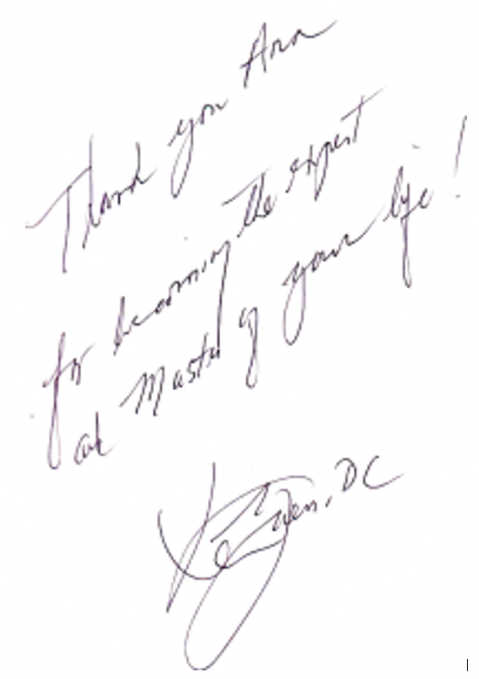 Thank you Ann
for becoming the expert
at Master of your life!
DC